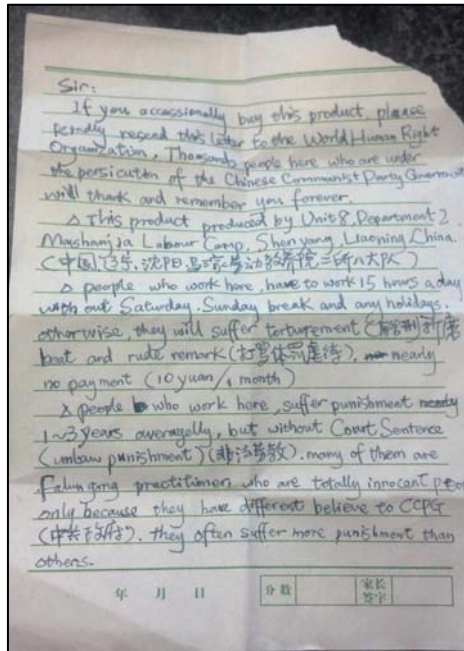 Sir:
If you occassionally buy this product, please
kindly resend this letter to the World Human Right
Organization. Thousands people here who are under
the persicution of the Chinese Communist Party Government
will thank and remember you forever.
△ This product produced by Unit 8, Department 2,
Mashanjia Labour Camp, Shenyang, Liaoning, China.
(中国,辽宁,沈阳,马三家劳动教养院二所八大队)
△ people who work here, have to work 15 hours a day
with out Saturday, Sunday break and any holidays,
otherwise, they will suffer torturement
beat and rude remark (打骂体罚虐待), nearly
no payment (10 yuan/1 month)
△ people who work here, suffer punishment
1~3 years averagelly, but without Court Sentence
(unlaw punishment) (非法劳教), many of them are
Falungong practitioner, who are totally innocent
only because they have different believe to CCPG
(中共政府), they often suffer more punishment than
others.
年 月 日 分数 家长签字